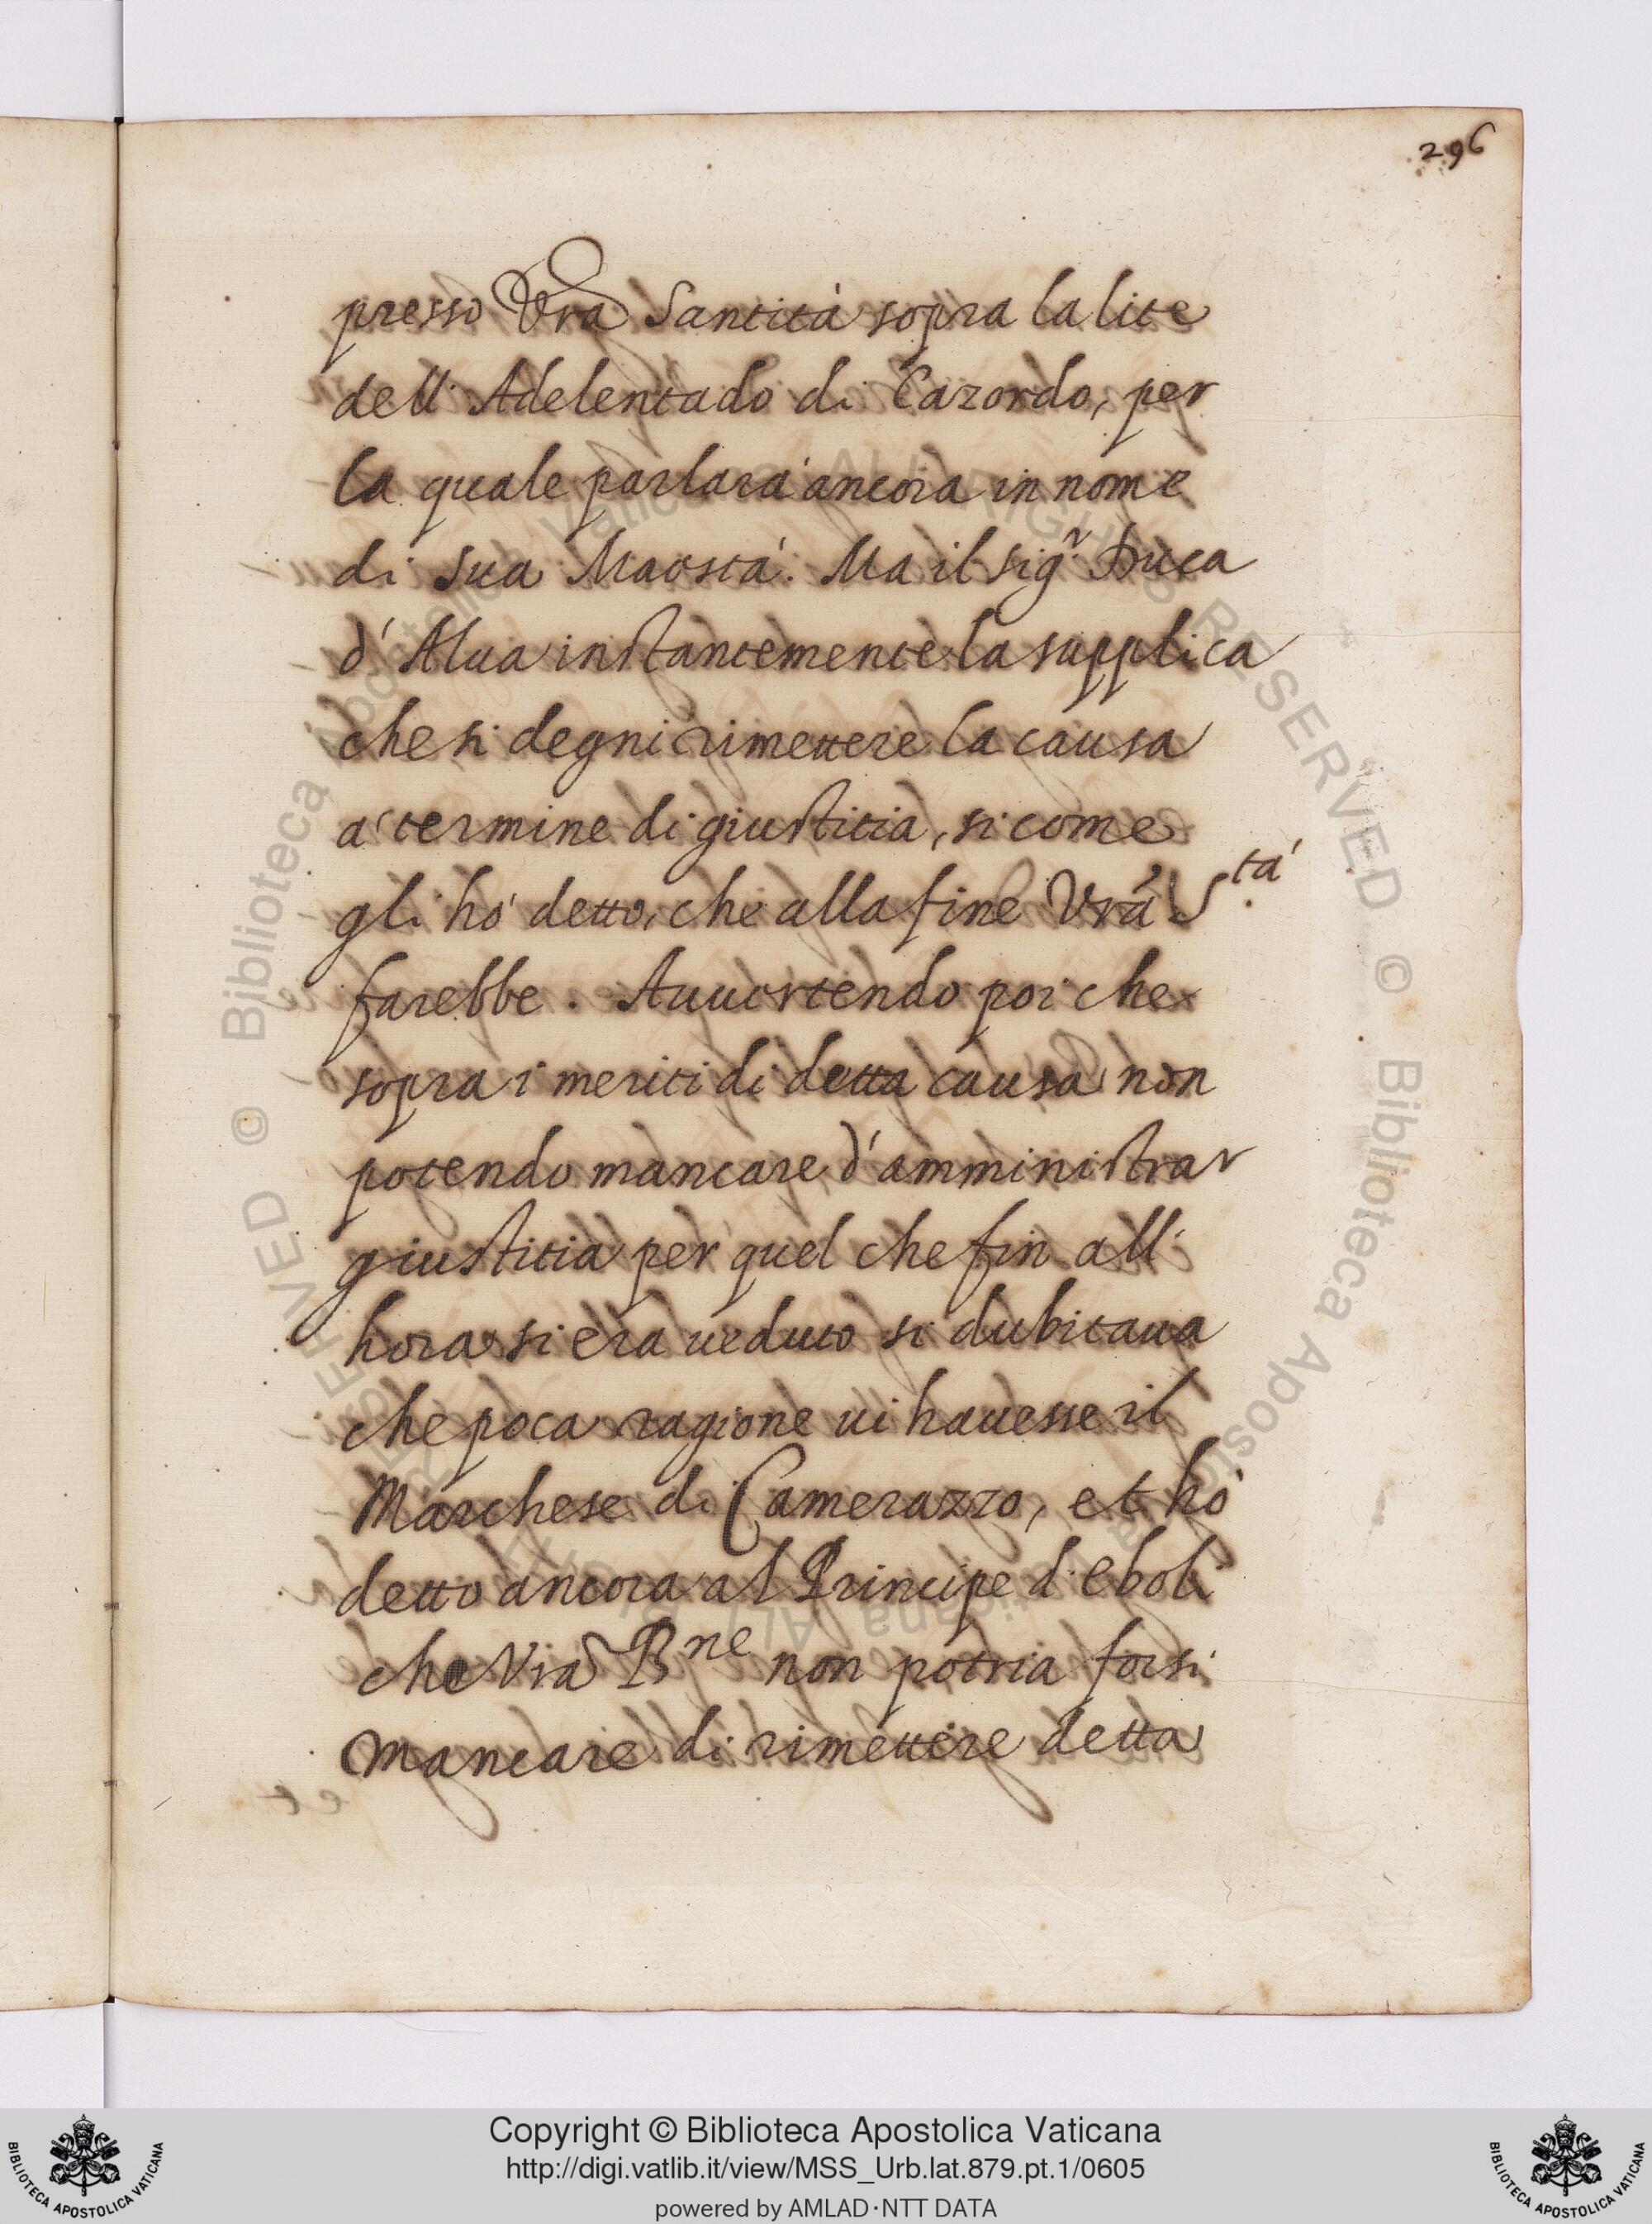 296
presso Vra Santità sopra la lite
dell' Adelentado di Cazordo, per
la quale parlarà ancora in nome
di sua Maestà. Ma il sig.r Duca
d'Alua instantemente la supplica
che si degni rimettere la causa
a' termine di giustitia, si come
gli hò detto, che alla fine Vra S.tà
farebbe. Auuertendo poi che
sopra i meriti di detta causa non
potendo mancare d'amministrar
giustitia per quel che fin all'
hora si era ueduto si dubitaua
che poca ragione ui hauesse il
Marchese di Camerazzo, et hò
detto ancora al Principe d'Eboli
che Vra B.ne non potria forsi
mancare di rimettere detta
Copyright © Biblioteca Apostolica Vaticana
http://digi.vatlib.it/view/MSS_Urb.lat.879.pt.1/0605
powered by AMLAD·NTT DATA
BIBLIOTECA APOSTOLICA VATICANA
BIBLIOTECA APOSTOLICA VATICANA